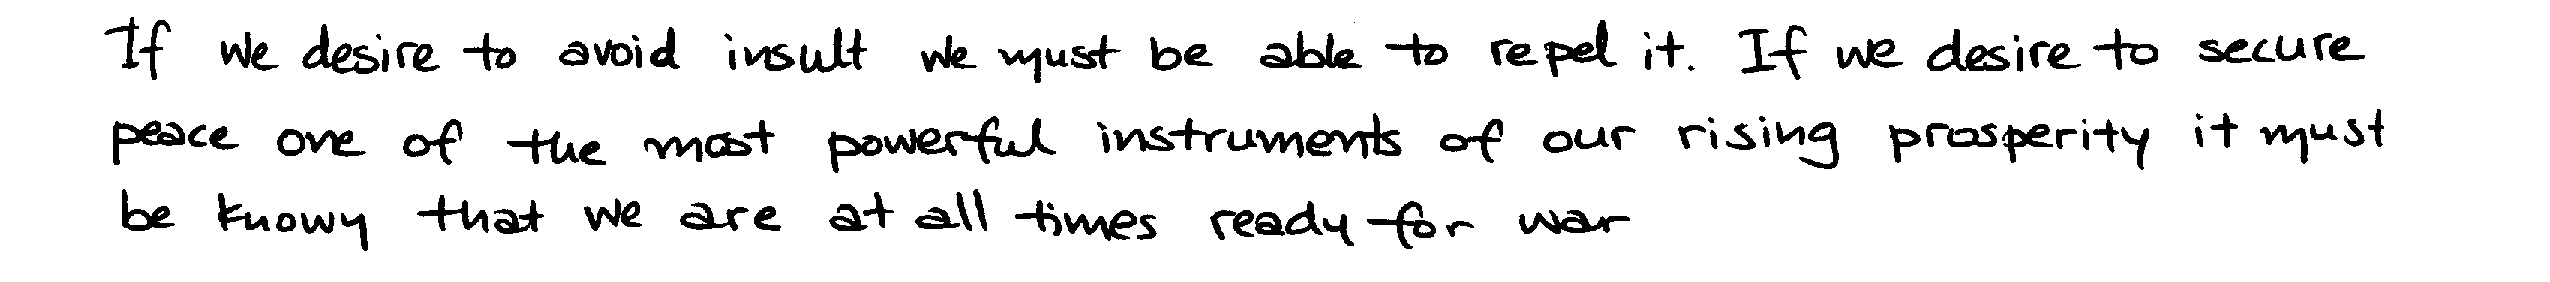 If we desire to avoid insult we must be able to repel it. If we desire to secure
peace one of the most powerful instruments of our rising prosperity it must
be knowy that we are at all times ready for war